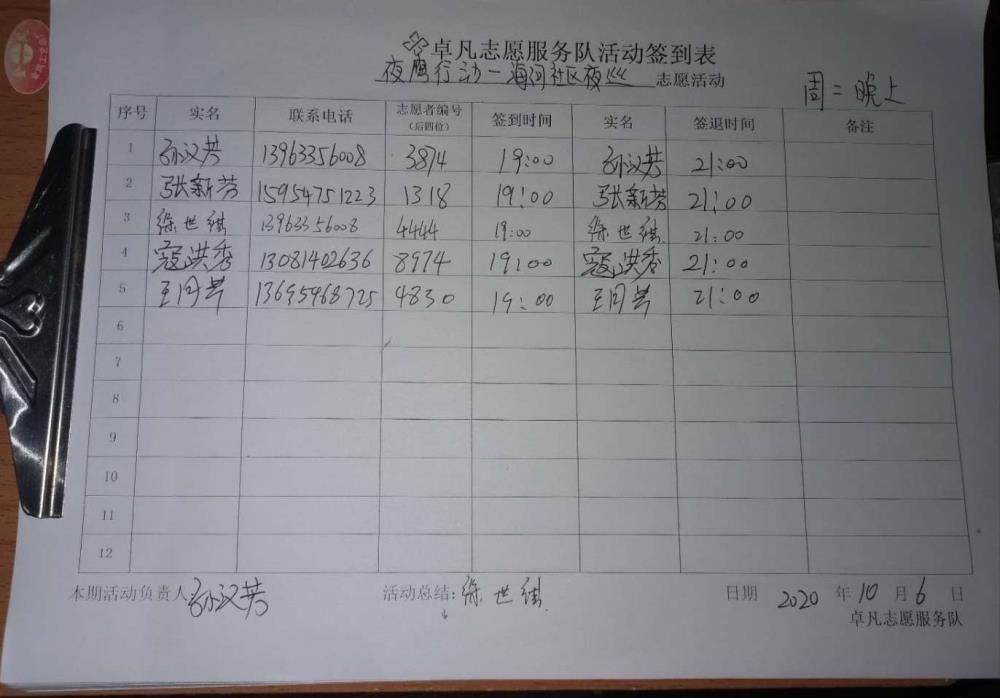 卓凡志愿服务队活动签到表
夜鹰行动—海河社区夜巡 志愿活动
周二晚上
序号 实名 联系电话 志愿者编号（后四位） 签到时间 实名 签退时间 备注
1 孙汉芳 13963356008 3874 19:00 孙汉芳 21:00
2 张新芳 15954751223 1318 19:00 张新芳 21:00
3 徐世祺 13963356008 4444 19:00 徐世祺 21:00
4 寇洪秀 13081402636 8974 19:00 寇洪秀 21:00
5 王同芹 13695968725 4830 19:00 王同芹 21:00
6
7
8
9
10
11
12
本期活动负责人 孙汉芳 活动总结：徐世祺 日期 2020 年 10 月 6 日
卓凡志愿服务队